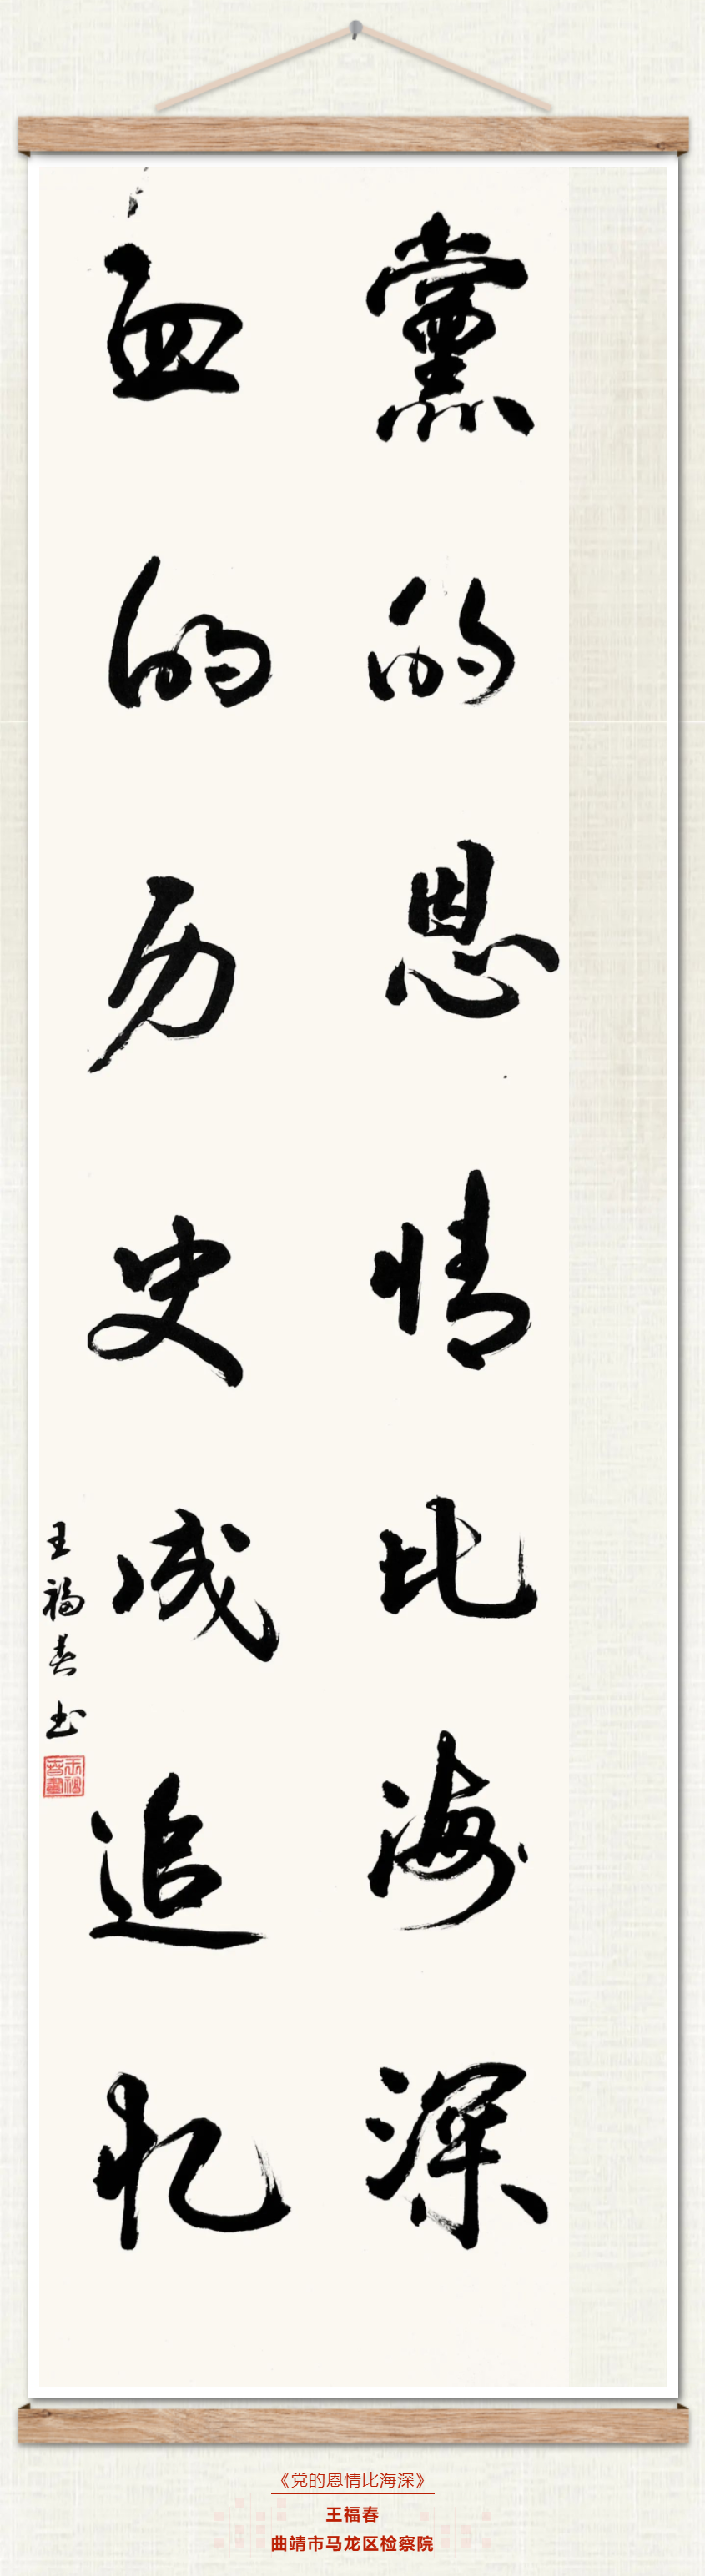 黨的恩情比海深
血的历史成追忆
王福春书
《党的恩情比海深》
王福春
曲靖市马龙区检察院